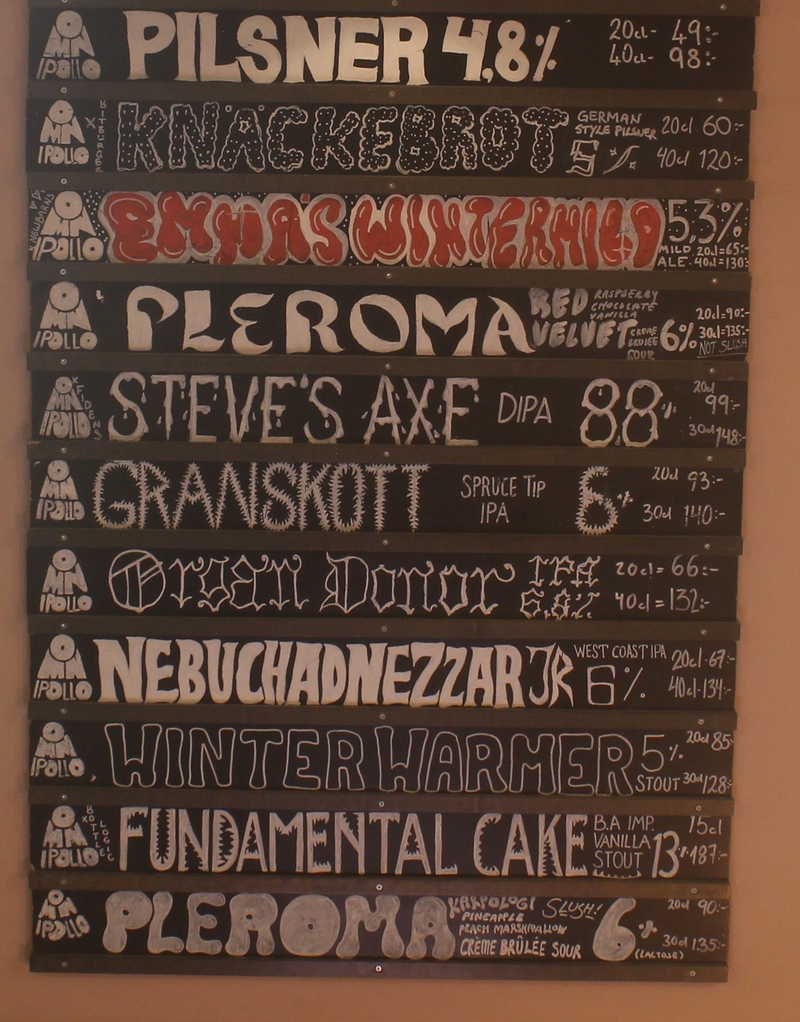 OMNIPOLLO PILSNER 4,8% 20cl- 49:-
40cl- 98:-
OMNIPOLLO X BITBURGER KNÄCKEBRÖT GERMAN STYLE PILSNER 5% 20cl 60:-
40cl 120:-
OMNIPOLLO EMMA'S WINTERMILD 5,3%
MILD 20cl=65:-
ALE. 40cl=130:-
OMNIPOLLO PLEROMA RED VELVET RASPBERRY CHOCOLATE VANILLA CREME BRULEE SOUR 6% 20cl=90:-
30cl=135:-
NOT SLUSH
OMNIPOLLO X FIDENS STEVE'S AXE DIPA 88% 20cl 99:-
30cl 148:-
OMNIPOLLO GRANSKOTT SPRUCE TIP IPA 6% 20cl 93:-
30cl 140:-
OMNIPOLLO Organ Donor IPA 6,8% 20cl=66:-
40cl=132:-
OMNIPOLLO NEBUCHADNEZZAR JR WEST COAST IPA 6% 20cl-67:-
40cl-134:-
OMNIPOLLO WINTER WARMER 5% STOUT 20cl 85:-
30cl 128:-
OMNIPOLLO X BOTTLE LOGIC FUNDAMENTAL CAKE B.A IMP. VANILLA STOUT 13% 15cl
187:-
OMNIPOLLO PLEROMA SLUSH!
PINEAPPLE
PEACH MARSHMALLOW
CRÈME BRÛLÉE SOUR 6% (LACTOSE) 20cl 90:-
30cl 135:-